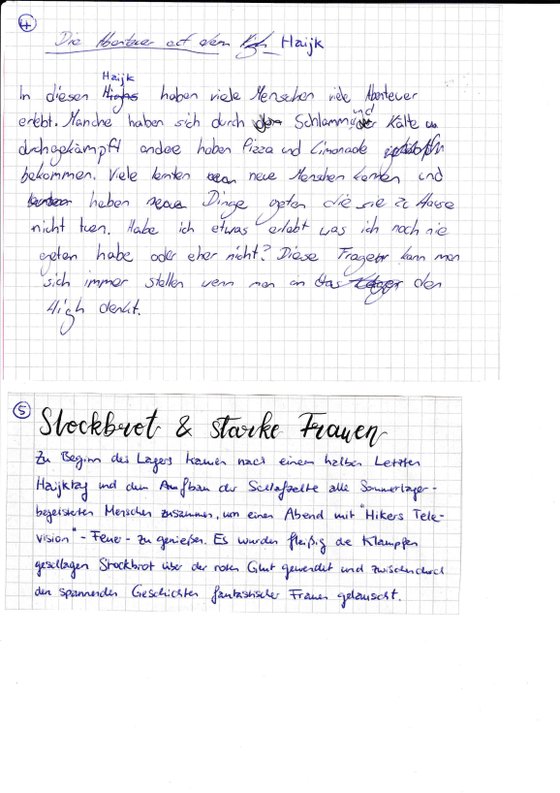 4
Die Abenteuer auf dem Haijk
Haijk
In diesen haben viele Menschen viele Abenteuer
und
erlebt. Manche haben sich durch Schlamm Kälte
durchgekämpft andere haben Pizza und Limonade
bekommen. Viele lernten neue Menschen kennen und
haben Dinge getan die sie zu Hause
nicht tuen. Habe ich etwas erlebt was ich noch nie
getan habe oder eher nicht? Diese Fragen kann man
sich immer stellen wenn man an den
High denkt.
5
Stockbrot & starke Frauen
Zu Beginn des Lagers kamen nach einem halben Letzten
Haijktag und dem Aufbau der Schlafzelte alle Sommerlager-
begeisterten Menschen zusammen, um einen Abend mit "Hikers Tele-
vision" - Feuer - zu genießen. Es wurden fleißig die Klampfen
geschlagen Stockbrot über der roten Glut gewendet und zwischendurch
den spannenden Geschichten fantastischer Frauen gelauscht.